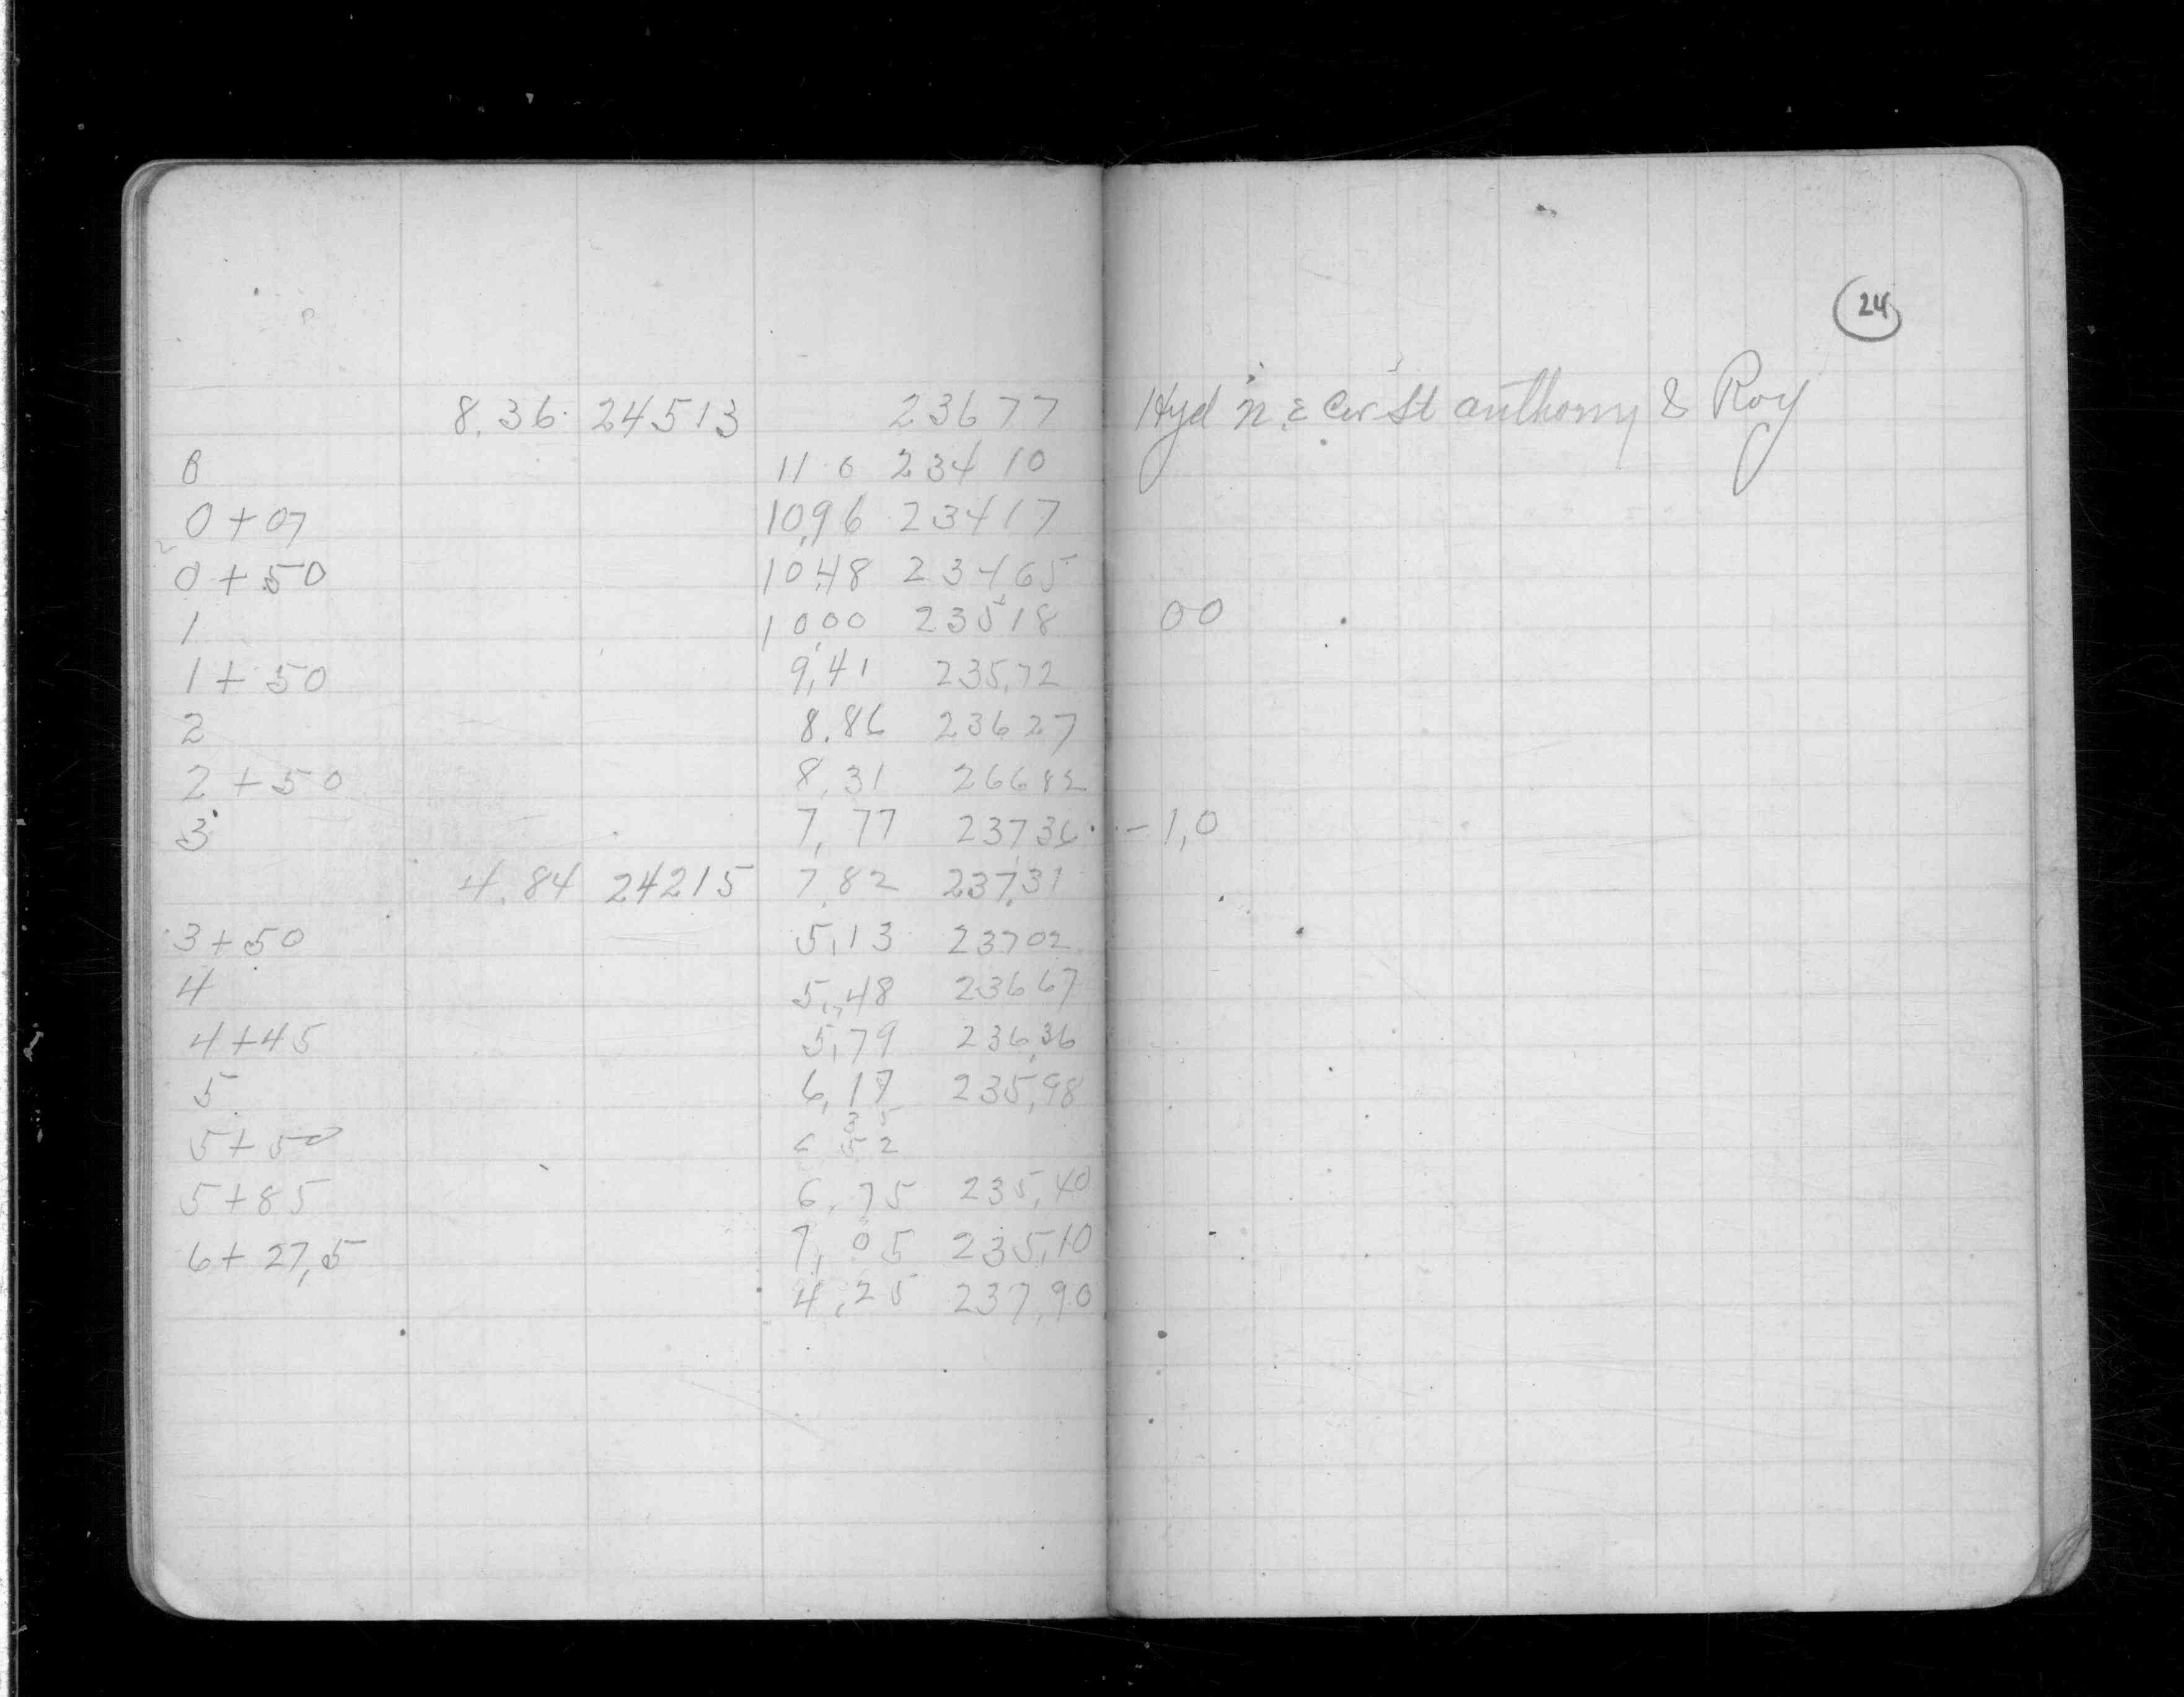 24
8.36 24513 23677 Hyd N.E Cor St Anthony & Roy
0 11 0 23410
0+07 10,96 23417
0+50 10,48 23465
1 10,00 23518 00
1+50 9,41 235,72
2 8.86 23627
2+50 8,31 26682
3 7,77 23736 -1,0
4.84 24215 7,82 237,31
3+50 5,13 23702
4 5,48 23667
4+45 5,79 236,36
5 6,17 235,98
5+50
5+85 6,75 235,40
6+27,5 7,05 235,10
4,25 237,90